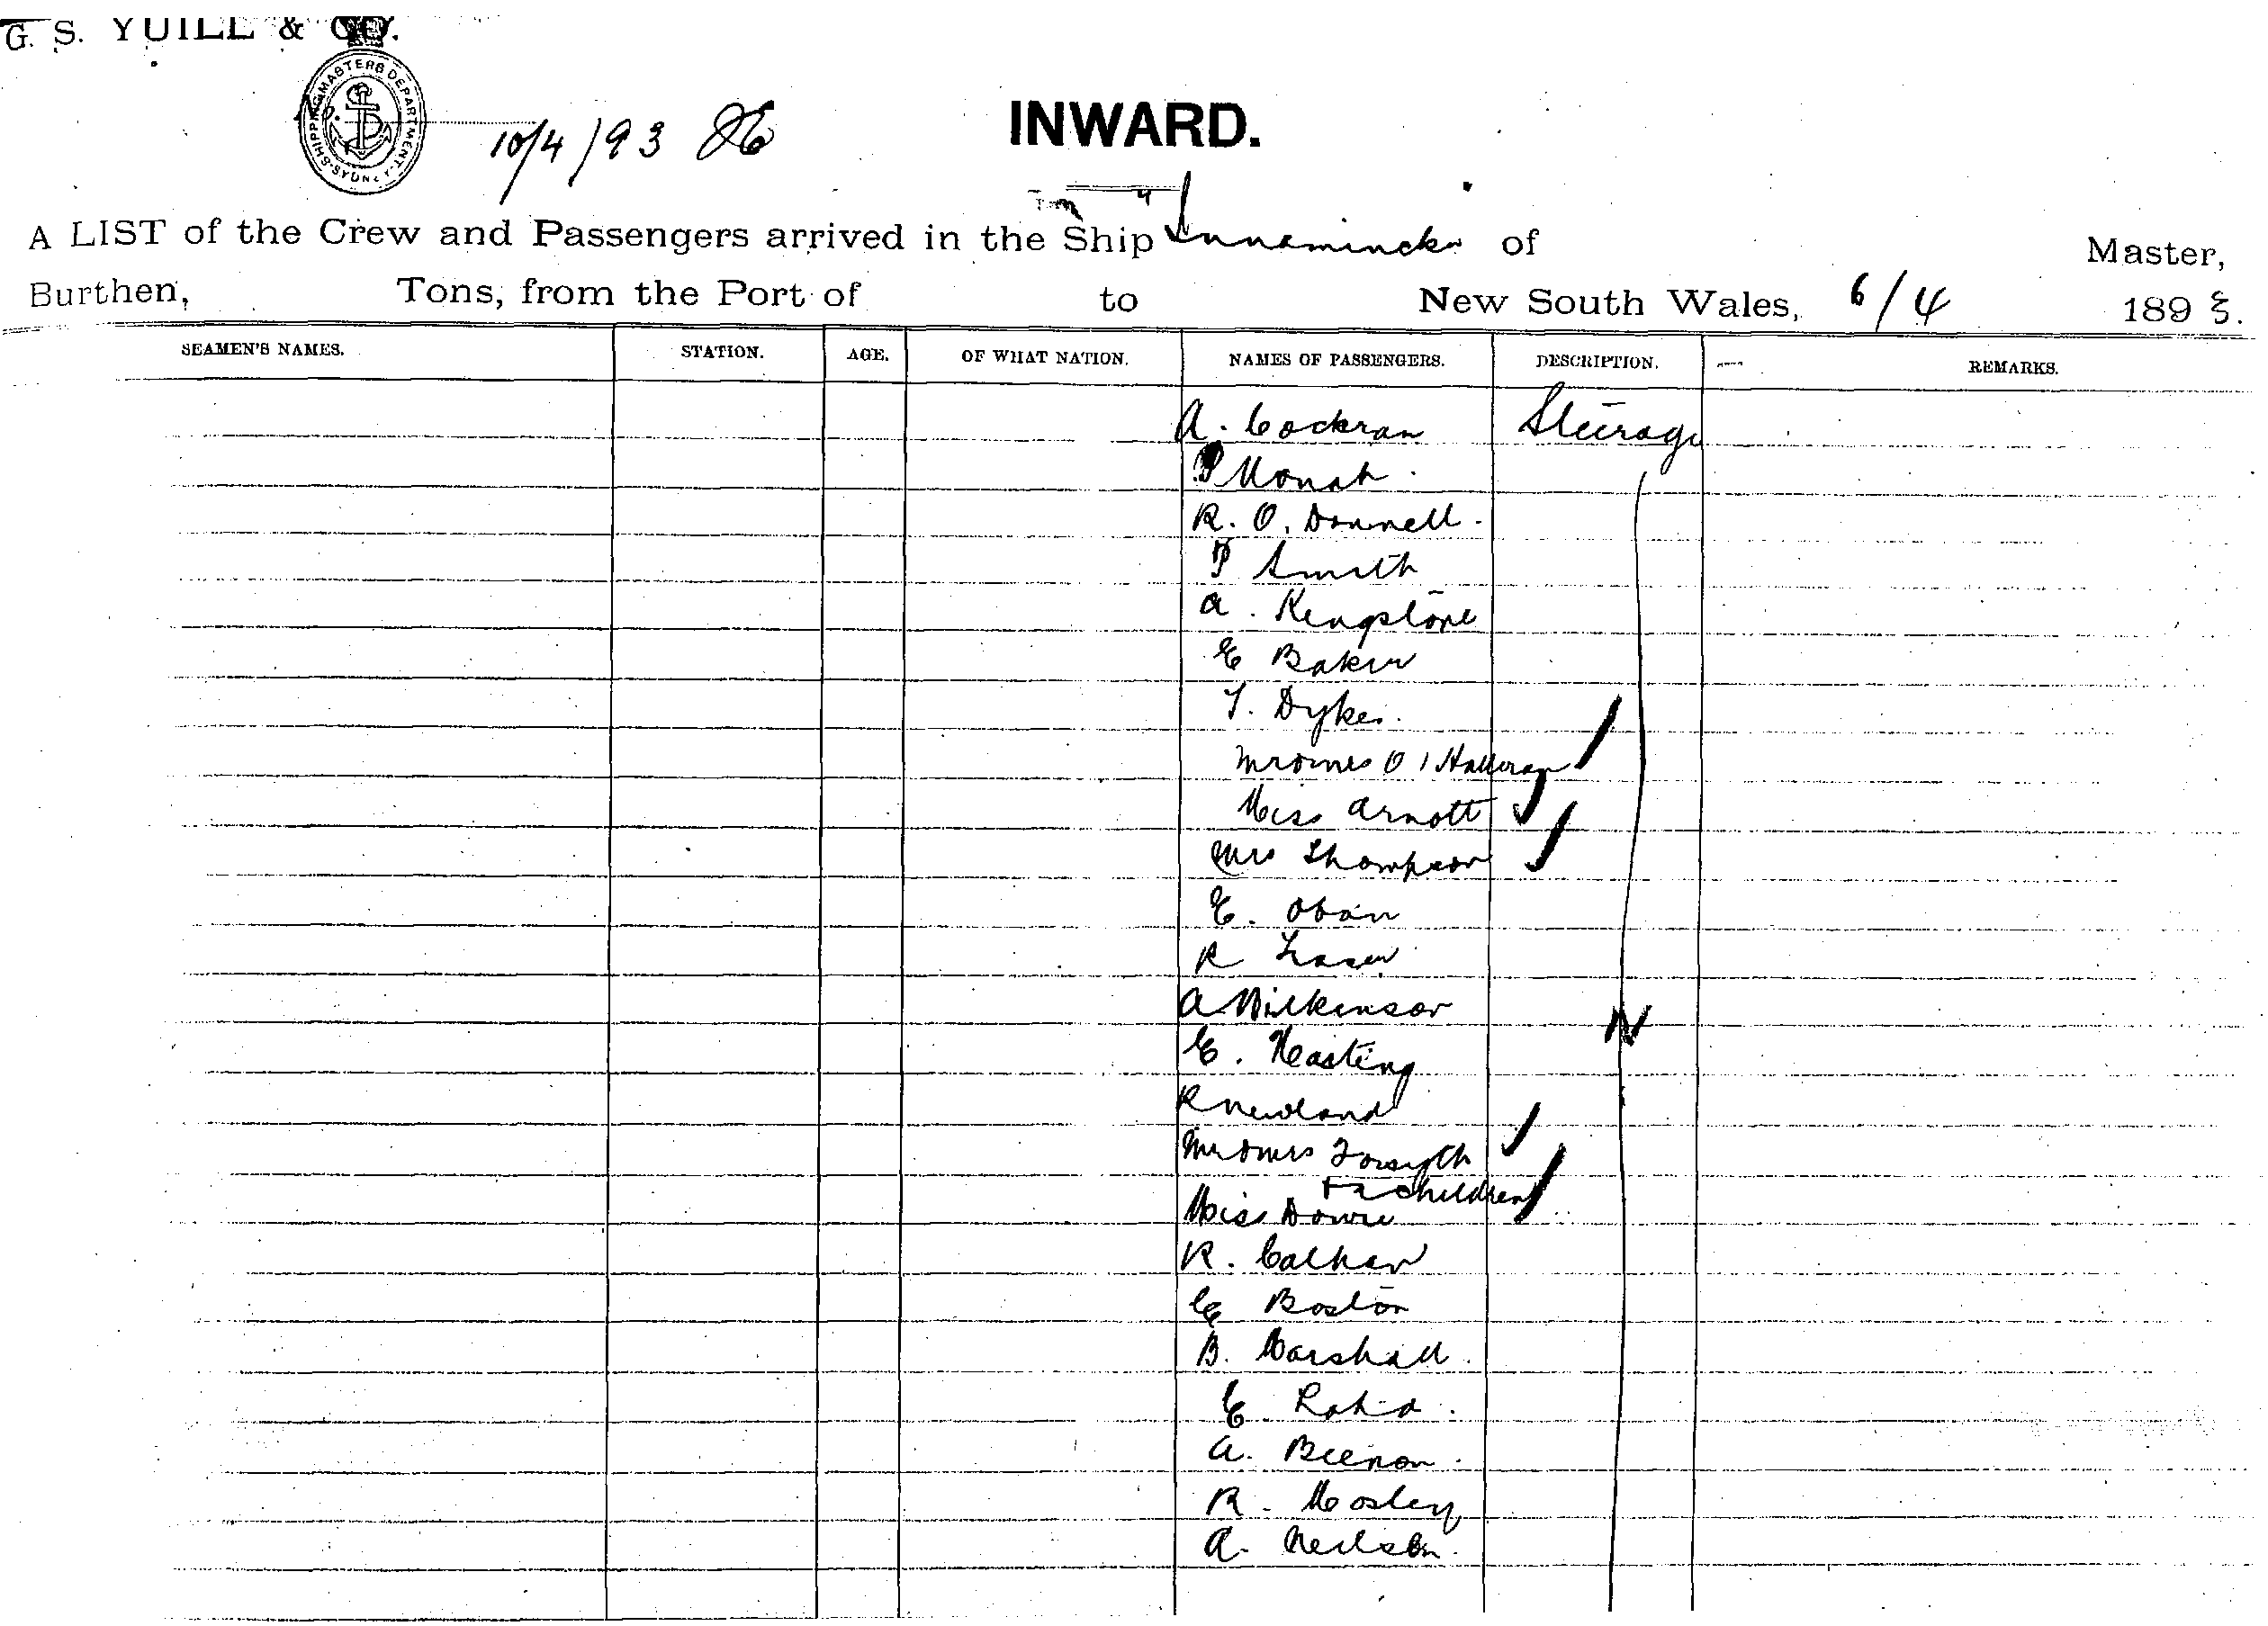 G. S. YUILL & CO.
SHIPPING MASTERS DEPARTMENT. SYDNEY
No.
10/4/93
INWARD.
A LIST of the Crew and Passengers arrived in the Ship Innamincka of Master,
Burthen, Tons, from the Port of to New South Wales, 6/4 1893.
SEAMEN'S NAMES. STATION. AGE. OF WHAT NATION. NAMES OF PASSENGERS. DESCRIPTION. REMARKS.
A. Cockran Steerage
P Monah
R. O. Donnell.
P Smith
A. Kingstone
E Baker
T. Dykes.
Mr & Mrs O'Halleran
Miss Arnott
Mrs Thompson
E. Oban
R
A Wilkinson
E. Hasting
R Newland
Mr & Mrs Forsyth
+ 2 children
Miss Downe
R. Calhar
E Boston
B. Marshall.
E
A.
R. Mosley
A. Neilson.